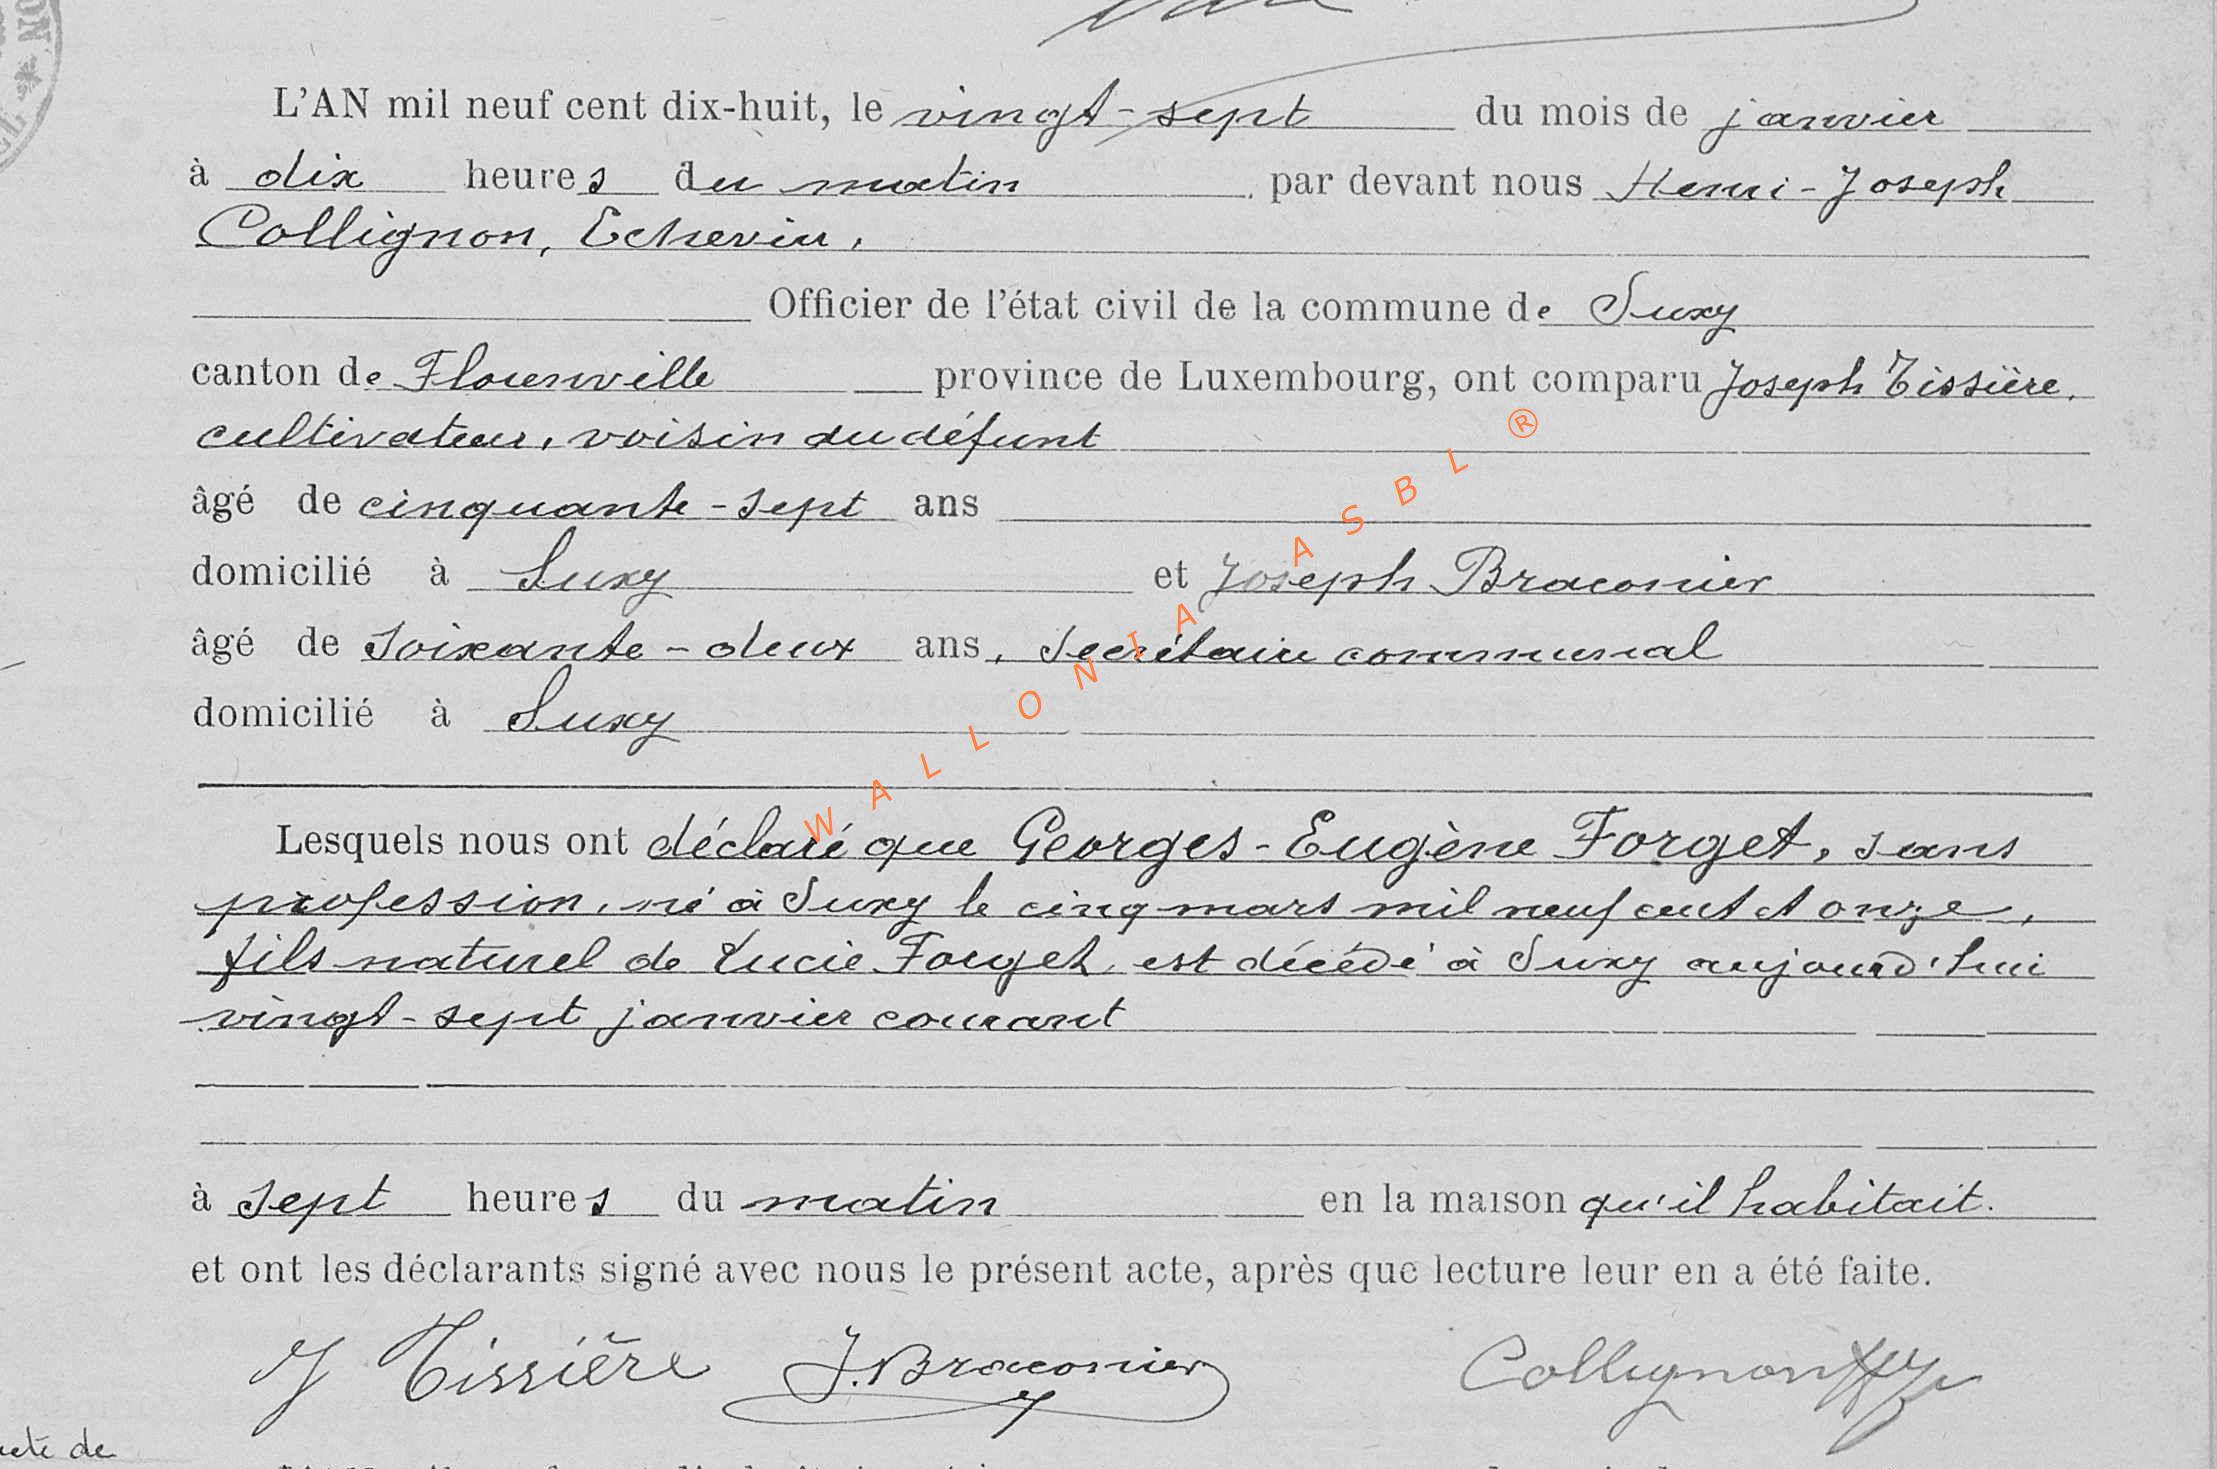 L'AN mil neuf cent dix-huit, le vingt-sept du mois de janvier
à dix heures du matin par devant nous Henri-Joseph
Collignon, Echevin,
Officier de l'état civil de la commune de Suxy
canton de Florenville province de Luxembourg, ont comparu Joseph Tissière,
cultivateur, voisin du défunt
âgé de cinquante-sept ans
domicilié à Suxy et Joseph Braconier
âgé de soixante-deux ans, secrétaire communal
domicilié à Suxy
WALLONIA ASBL ®
Lesquels nous ont déclaré que Georges-Eugène Forget, sans
profession, né à Suxy le cinq mars mil neuf cent et onze,
fils naturel de Lucie Forget est décédé à Suxy aujourd'hui
vingt-sept janvier courant
à sept heures du matin en la maison qu'il habitait.
et ont les déclarants signé avec nous le présent acte, après que lecture leur en a été faite.
J Tissière J. Braconier Collignon
de